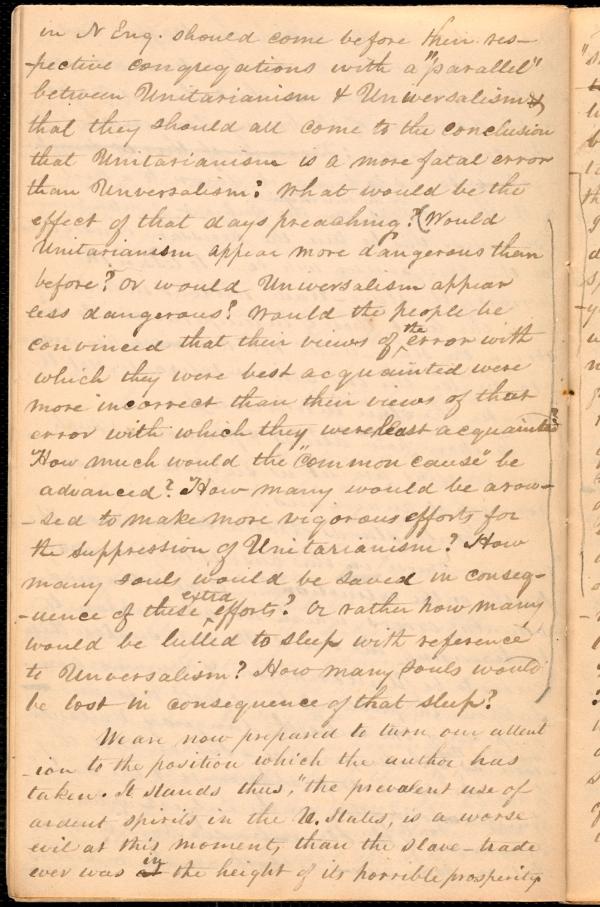 in N Eng. should come before their res-
-pective congregations with a "parallel"
between Unitarianism & Universalism &
that they should all come to the conclusion
that Unitarianism is a more fatal error
than Unversalism: What would be the
effect of that days preaching? (Would
Unitarianism appear more dangerous than
before? Or would Universalism appear
less dangerous? Would the people be
convinced that their views of the error with
which they were best acquainted were
more incorrect than their views of that
error with which they were least acquainted
How much would the "common cause" be
advanced? How many would be arow-
-sed to make more vigorous efforts for
the suppression of Unitarianism? How
many souls would be saved in conseq-
-uence of these extra efforts? Or rather how many
would be lulled to sleep with reference
to Unversalism? How many souls would
be lost in consequence of that sleep?
We are now prepared to turn our attent
-ion to the position which the author has
taken. It stands thus, "the prevalent use of
ardent spirits in the U. States, is a worse
evil at this moment, than the slave-trade
ever was in the height of its horrible prosperity.